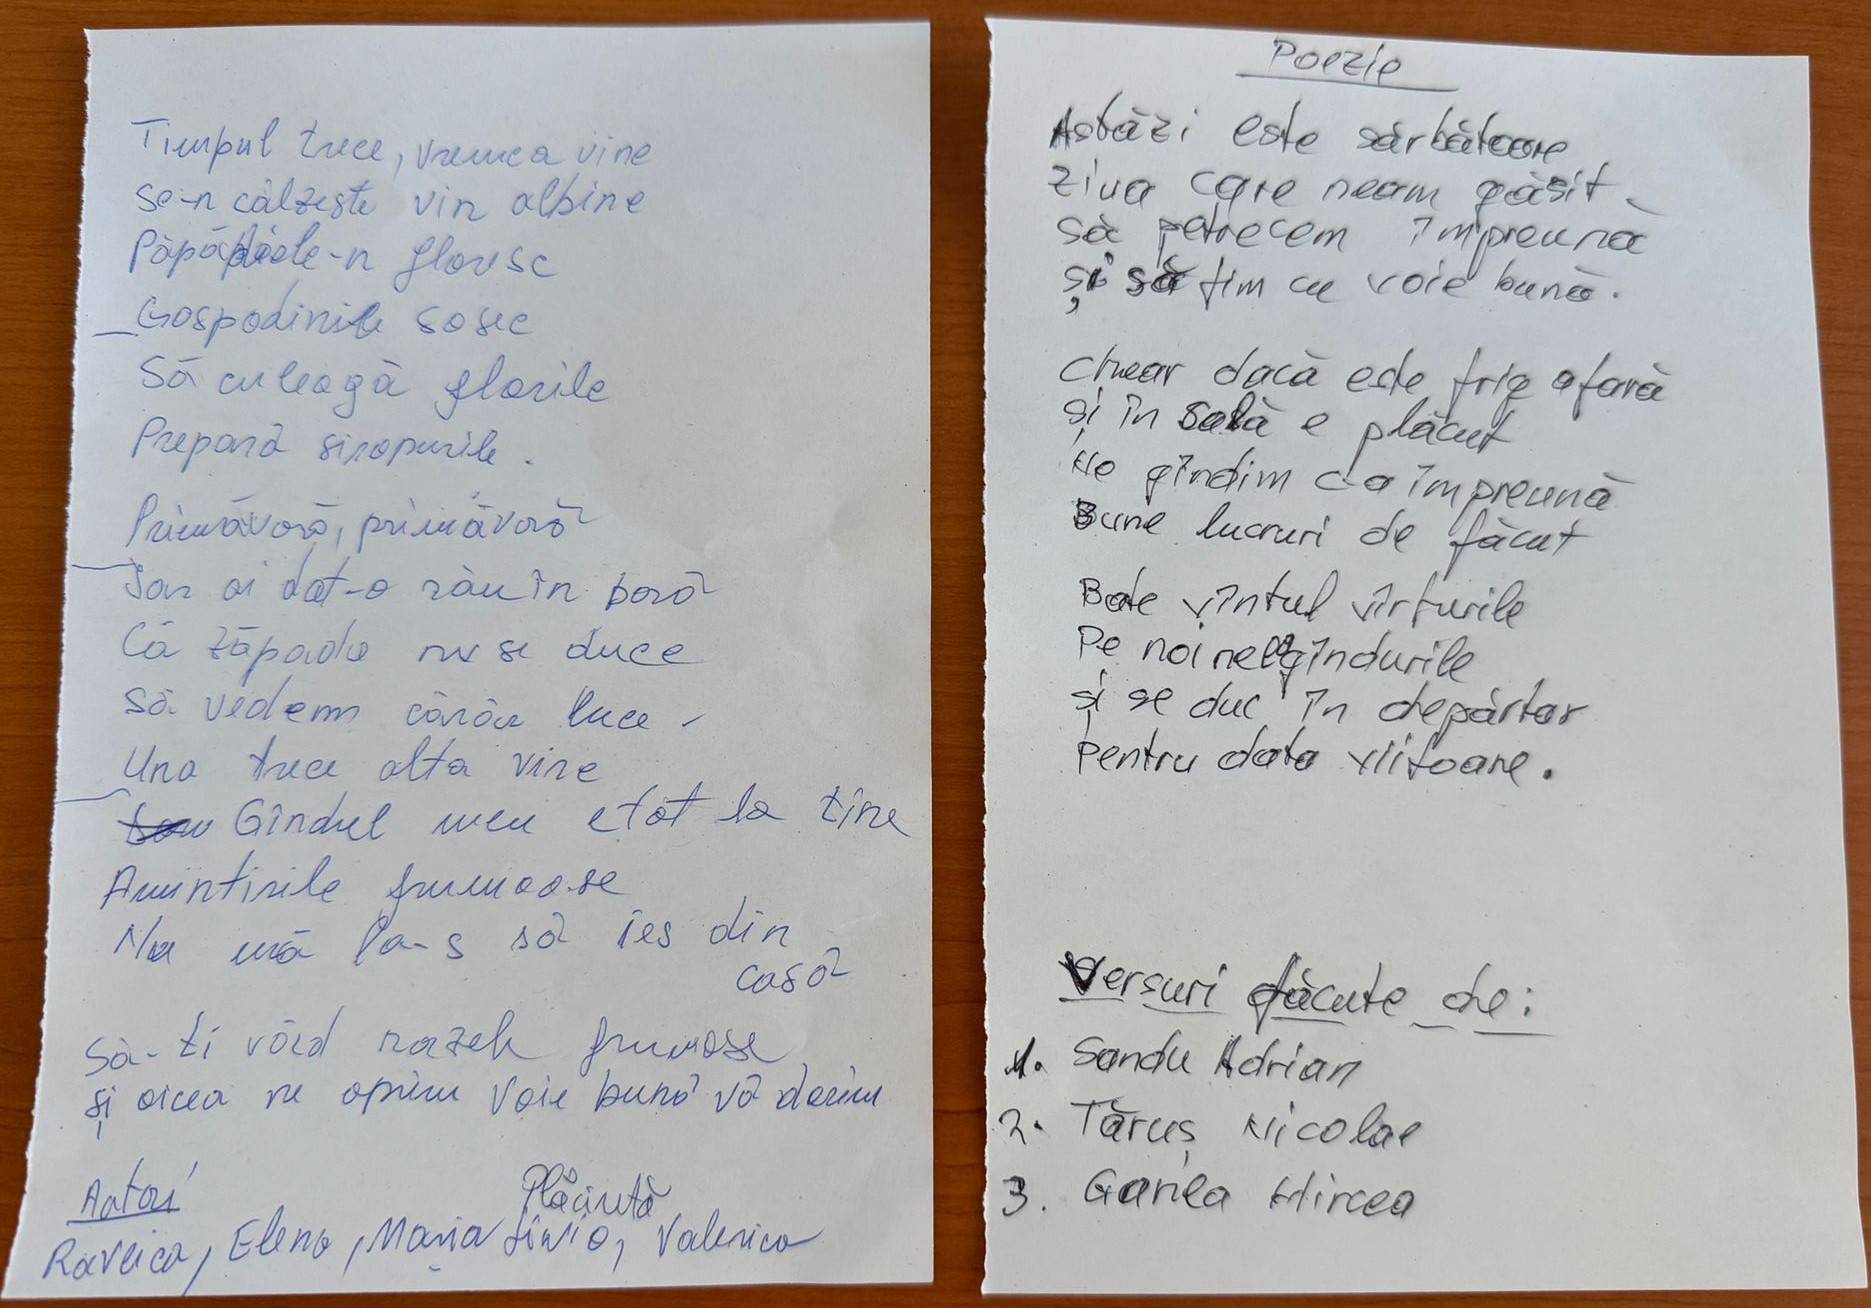 Timpul trece, vremea vine
se-n călzește vin albine
Păpădiole-n floresc
Gospodinile sosec
Să culeagă florile
Prepară siropurile.
Primăvară, primăvară
Iar ai dat-o rău în bară
Că zăpada nu se duce
Să vedem cărău luce
Una trece alta vine
Gîndul meu etot la tine
Amintirile frumoase
Nu mă la-s să ies din
casă
Să-ti văd razele frumose
și aicea ne oprim voie bună vă dorim
Autori
Plăcintă
Raveica, Elena, Maria Livia, Valerica
Poezie
Astăzi este sărbătoare
Ziua care neam găsit
Să petrecem împreună
și să fim cu voie bună.
Chear dacă este frig afară
și în sală e plăcut
Ne gîndim ca împreună
Bune lucruri de făcut
Bate vîntul vîrfurile
Pe noi ne gîndurile
și se duc în depărtar
Pentru data viitoare.
Versuri făcute de:
1. Sandu Adrian
2. Tăruș Nicolae
3. Ganea Mircea